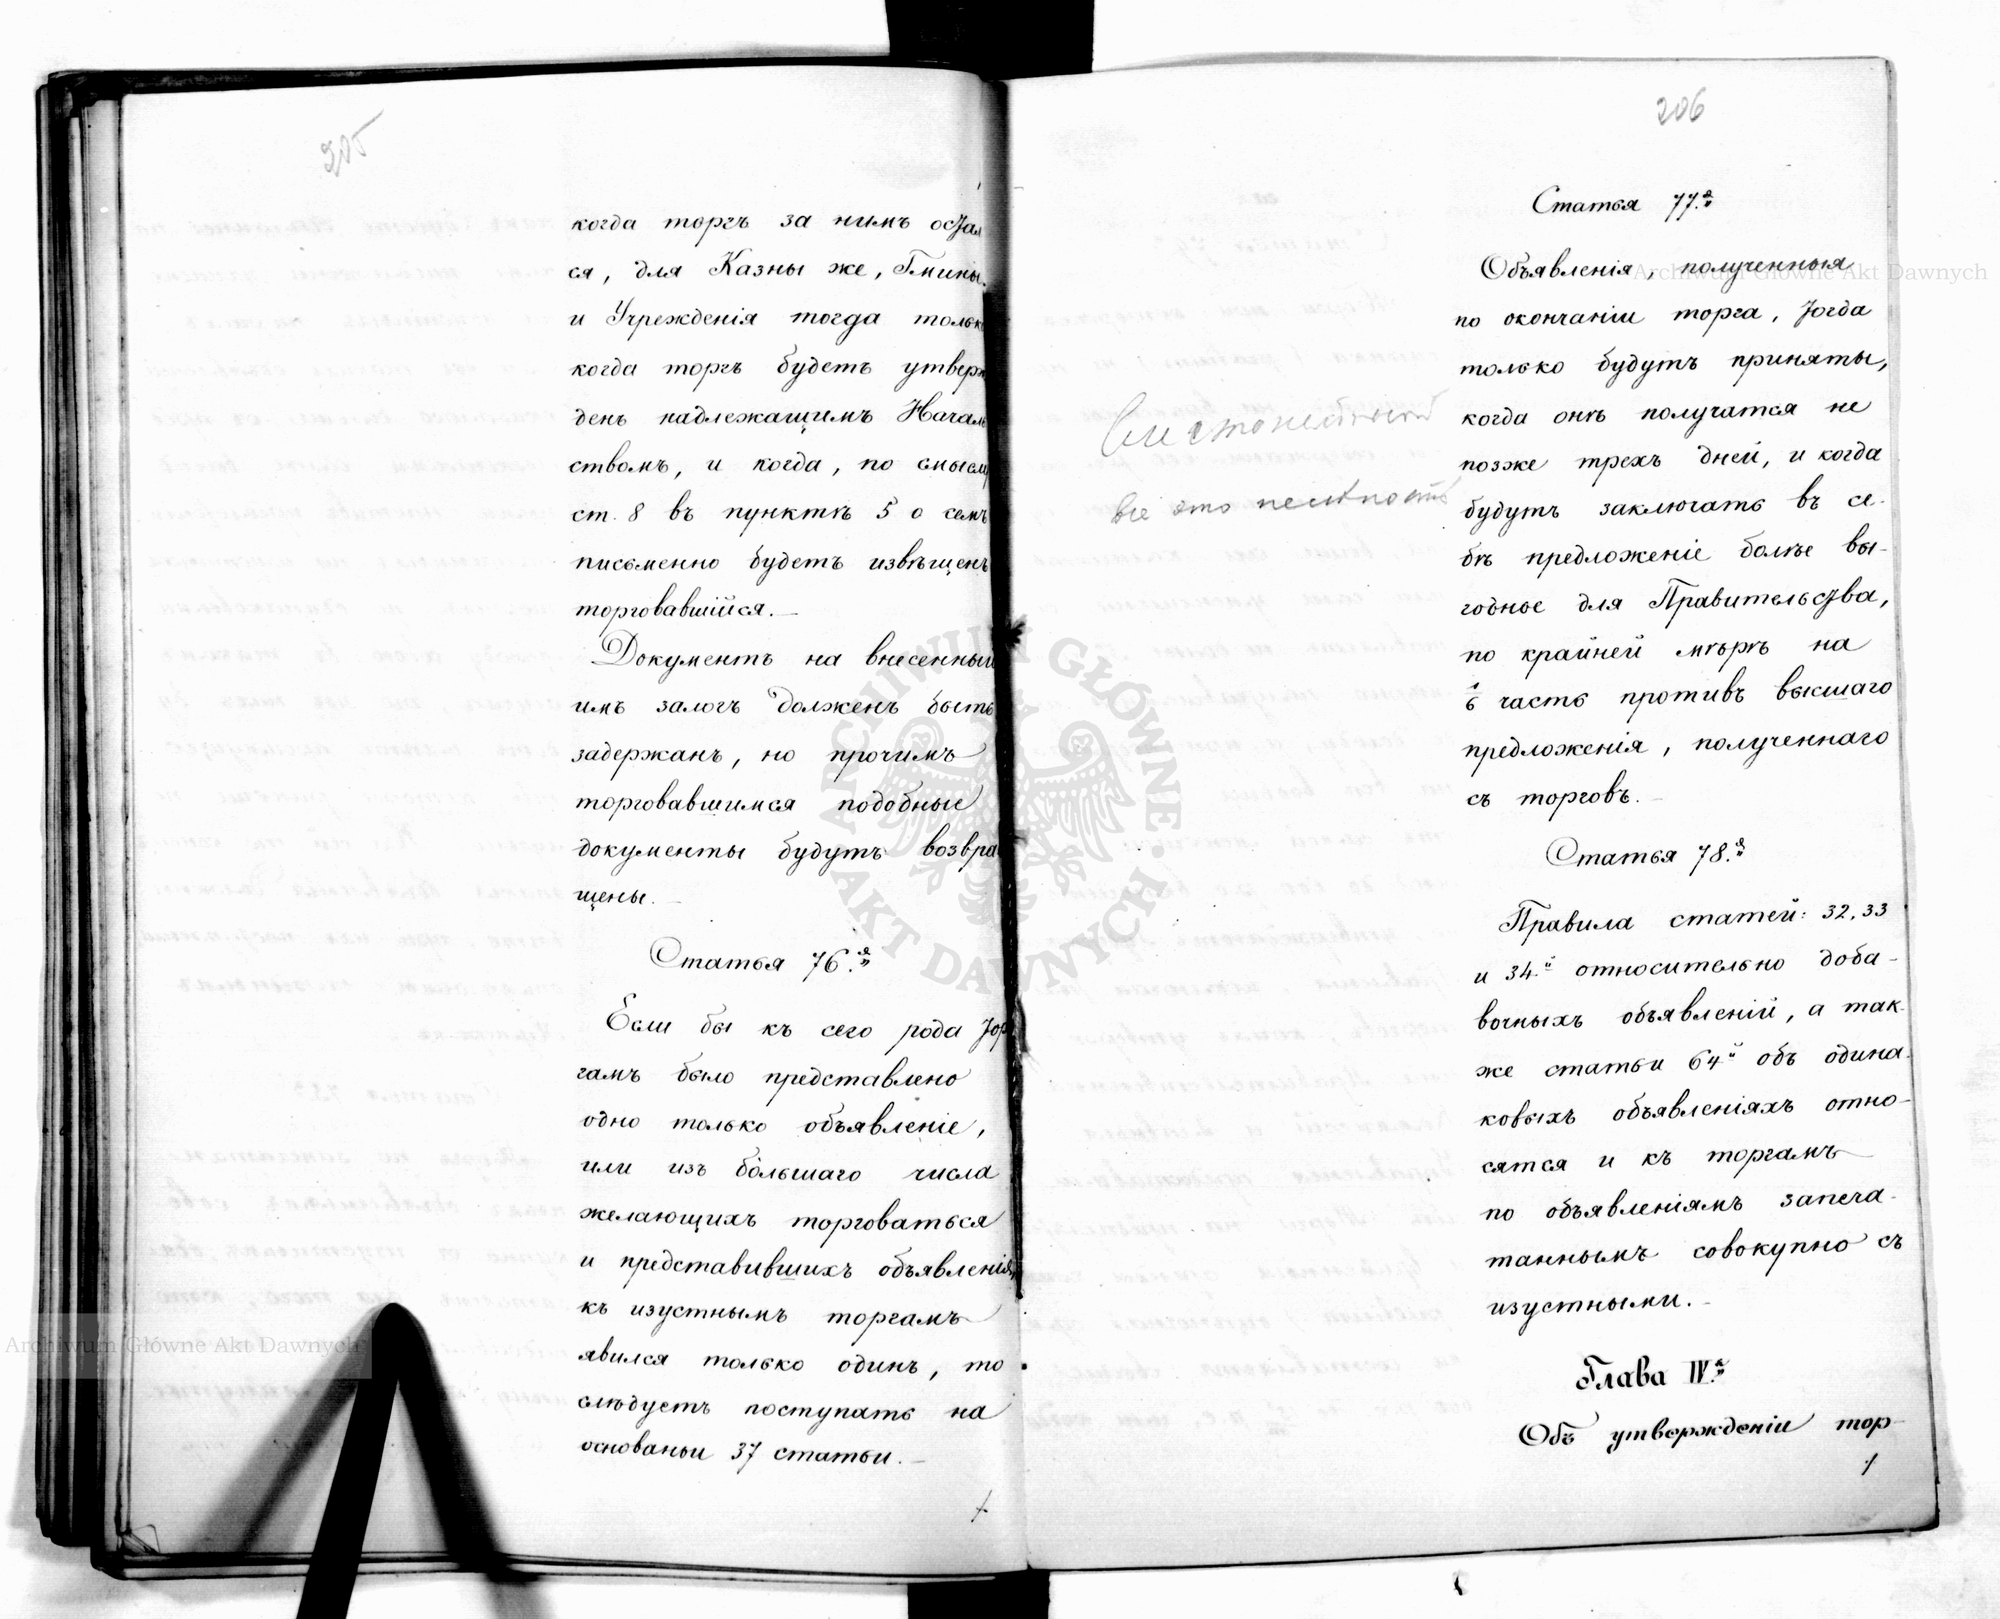 205
когда торгъ за нимъ остал
ся, для Казны же, Гмины
и Учрежденія тогда только
когда торгъ будетъ утверж
денъ надлежащимъ Началь
ствомъ, и когда, по смыслу
ст. 8 въ пунктѣ 5 о семъ
письменно будетъ извѣщенъ
торговавшійся. —
Документъ на внесенный
имъ залогъ долженъ быть
задержанъ, но прочимъ
торговавшимся подобные
документы будутъ возвра
щены. —
Статья 76.я
Если бы къ сего рода тор
гамъ было представлено
одно только объявленіе,
или изъ бо́льшаго числа
желающихъ торговаться
и представившихъ объявленія,
къ изустнымъ торгамъ
явился только одинъ, то
слѣдуетъ поступать на
основаньи 37 статьи. —
206
Статья 77.я
Объявленія, полученныя
по окончаніи торга, тогда
только будутъ приняты,
когда онѣ получатся не
позже трехъ дней, и когда
будутъ заключать въ се-
бѣ предложеніе болѣе вы-
годное для Правительства,
по крайней мѣрѣ на
1/6 часть противъ высшаго
предложенія, полученнаго
съ торговъ. —
все это нелѣпость
Статья 78.я
Правила статей: 32, 33
и 34.й относительно доба-
вочныхъ объявленій, а так-
же статьи 64й объ одина-
ковыхъ объявленіяхъ отно-
сятся и къ торгамъ
по объявленіямъ запеча-
таннымъ совокупно съ
изустными. —
Глава IV.я
Объ утвержденіи тор-
Archiwum Główne Akt Dawnych
Archiwum Główne Akt Dawnych
ARCHIWUM GŁÓWNE AKT DAWNYCH